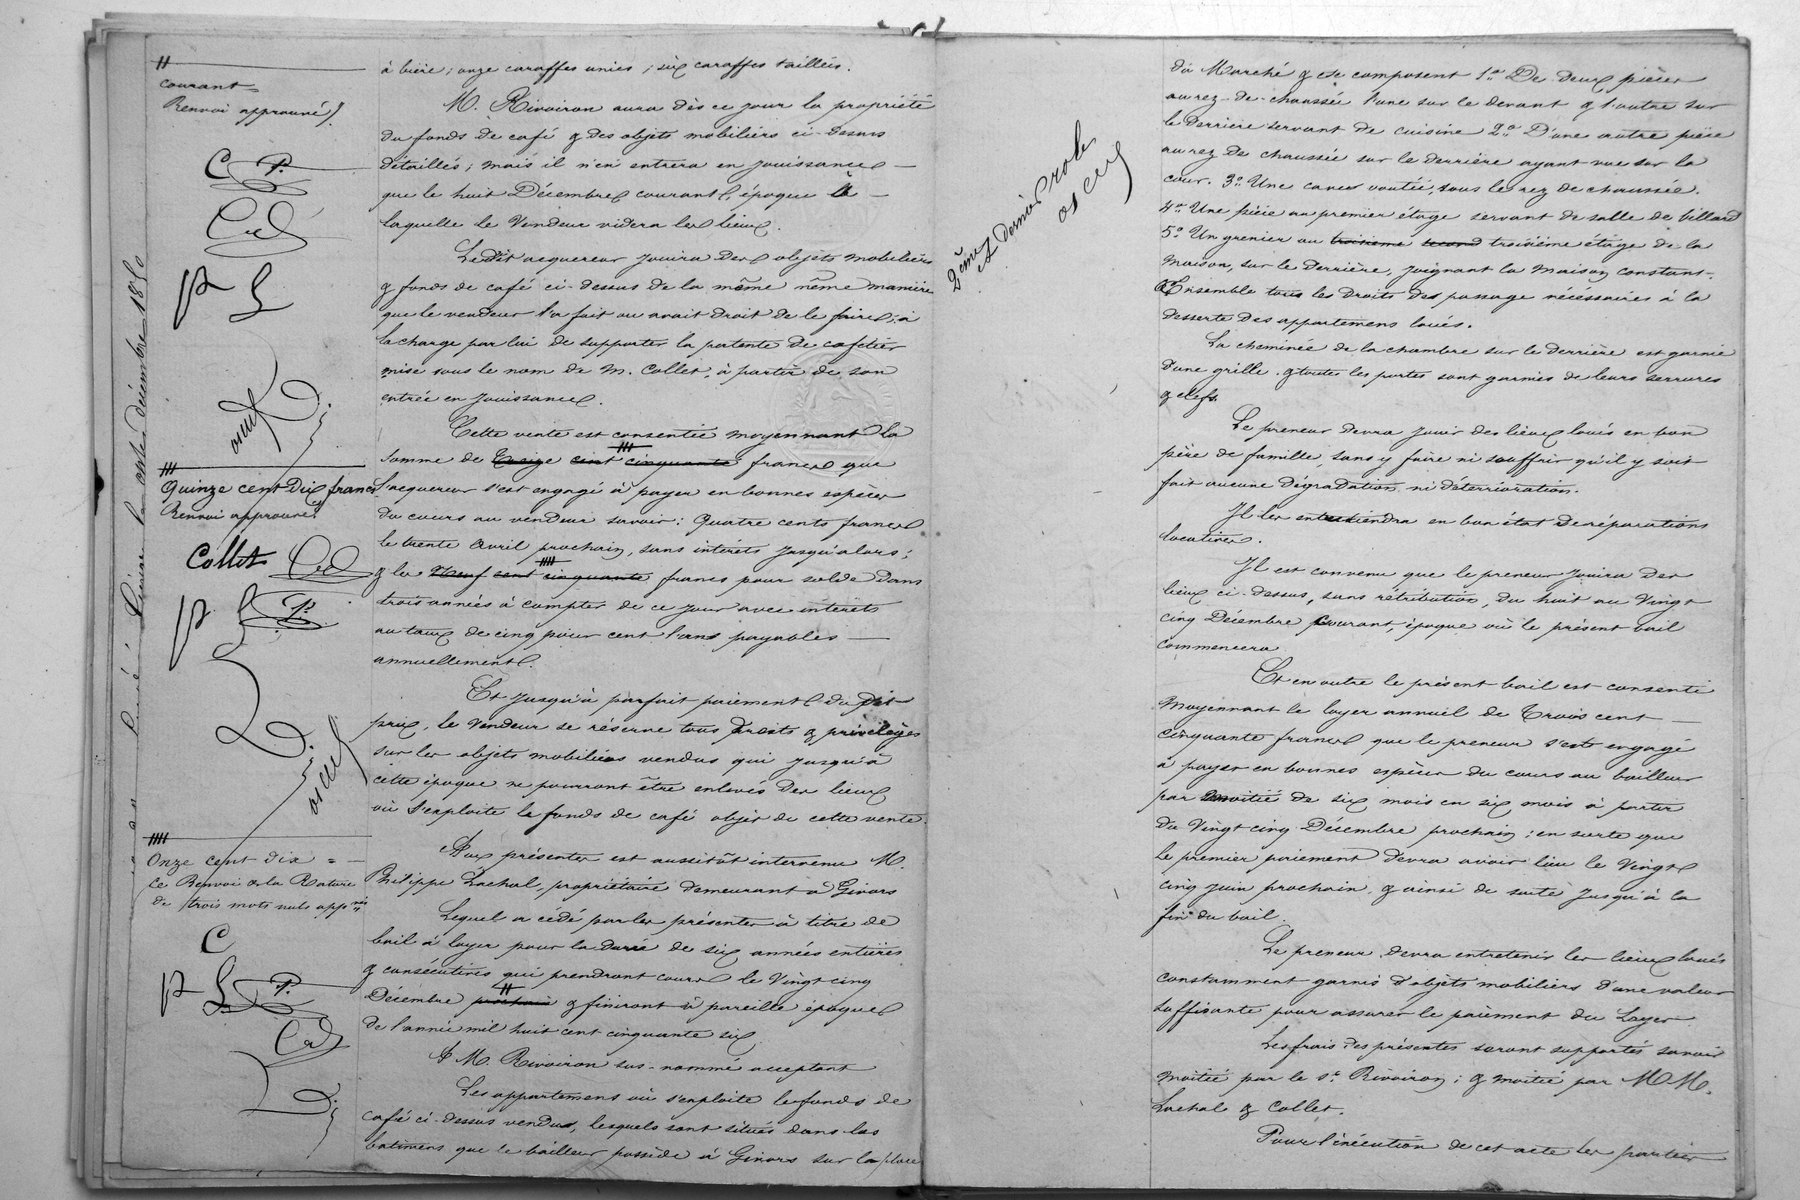 courant =
Renvoi approuvé
C P.
Quinze cent dix francs
Renvoi approuvé
Collet
P.
Onze cent dix = —
Ce Renvoi & la Rature
de trois mots nuls appvés
C
P.
à bière; onze caraffes unies; six caraffes taillées.
M. Rivoiron aura dès ce jour la propriété
du fonds de café & des objets mobiliers ci-dessus
détaillés; mais il n'en entrera en jouissance —
que le huit Décembre courant, époque à —
laquelle le Vendeur videra les lieux.
Le dit acquereur jouira des objets mobiliers
& fonds de café ci-dessus de la même même manière
que le vendeur l'a fait ou avait droit de le faire; à
la charge par lui de supporter la patente de cafetier
mise sous le nom de M. Collet, à partir de son
entrée en jouissance.
Cette vente est consentie moyennant la
somme de cent cinquante francs que
l'acquereur s'est engagé à payer en bonnes espèces
du cours au vendeur savoir: Quatre cents francs
le trente Avril prochain, sans intérêts jusqu'alors;
& les Neuf cent cinquante francs pour solde dans
trois années à compter de ce jour avec intérêts
au taux de cinq pour cent l'ans payables —
annuellement.
Et jusqu'à parfait paiement du dit
prix, le Vendeur se réserve tous droits & privilèges
sur les objets mobiliers vendus qui jusqu'à
cette époque ne pourront être enlevés des lieux
où s'exploite le fonds de café objet de cette vente.
Aux présentes est aussitôt intervenu M.
Philippe Lachal, propriétaire demeurant à Givors
Lequel a cédé par les présentes à titre de
bail à loyer pour la durée de six années entières
& consécutives qui prendront cours le Vingt cinq
Décembre prochain & finiront à pareille époque
de l'année mil huit cent cinquante six
A M. Rivoiron sus-nommé acceptant
Les appartemens où s'exploite le fonds de
café ci-dessus vendu, lesquels sont situés dans les
batimens que le bailleur possède à Givors sur la place
2ème & dernier rôle
du Marché & se composent 1° De deux pièces
au rez-de-chaussée l'une sur le devant & l'autre sur
le derrière servant de cuisine 2° D'une autre pièce
au rez de chaussée sur le derrière ayant vue sur la
cour. 3° Une cave voutée, sous le rez de chaussée.
4° Une pièce au premier étage servant de salle de billard
5° Un grenier au troisième second troisième étage de la
maison, sur le derrière, joignant la maison Constant.
Ensemble tous les droits de passage nécessaires à la
desserte des appartemens loués.
La cheminée de la chambre sur le derrière est garnie
d'une grille. & toutes les portes sont garnies de leurs serrures
& clefs.
Le preneur devra jouir des lieux loués en bon
père de famille, sans y faire ni souffrir qu'il y soit
fait aucune dégradation ni détérioration.
Il les entretiendra en bon état de réparations
locatives.
Il est convenu que le preneur jouira des
lieux ci-dessus, sans rétribution, du huit au Vingt
cinq Décembre courant, époque où le présent bail
commencera
Et en outre le présent bail est consenti
moyennant le loyer annuel de Trois cent —
cinquante francs que le preneur s'est engagé
à payer en bonnes espèces du cours au bailleur
par moitié de six mois en six mois à partir
du Vingt cinq Décembre prochain; en sorte que
le premier paiement devra avoir lieu le Vingt
cinq juin prochain & ainsi de suite jusqu'à la
fin du bail.
Le preneur devra entretenir les lieux loués
constamment garnis d'objets mobiliers d'une valeur
suffisante pour assurer le paiement du loyer
Les frais des présentes seront supportés savoir
moitié par le sr. Rivoiron; & moitié par M M.
Lachal & Collet.
Pour l'exécution de cet acte les parties